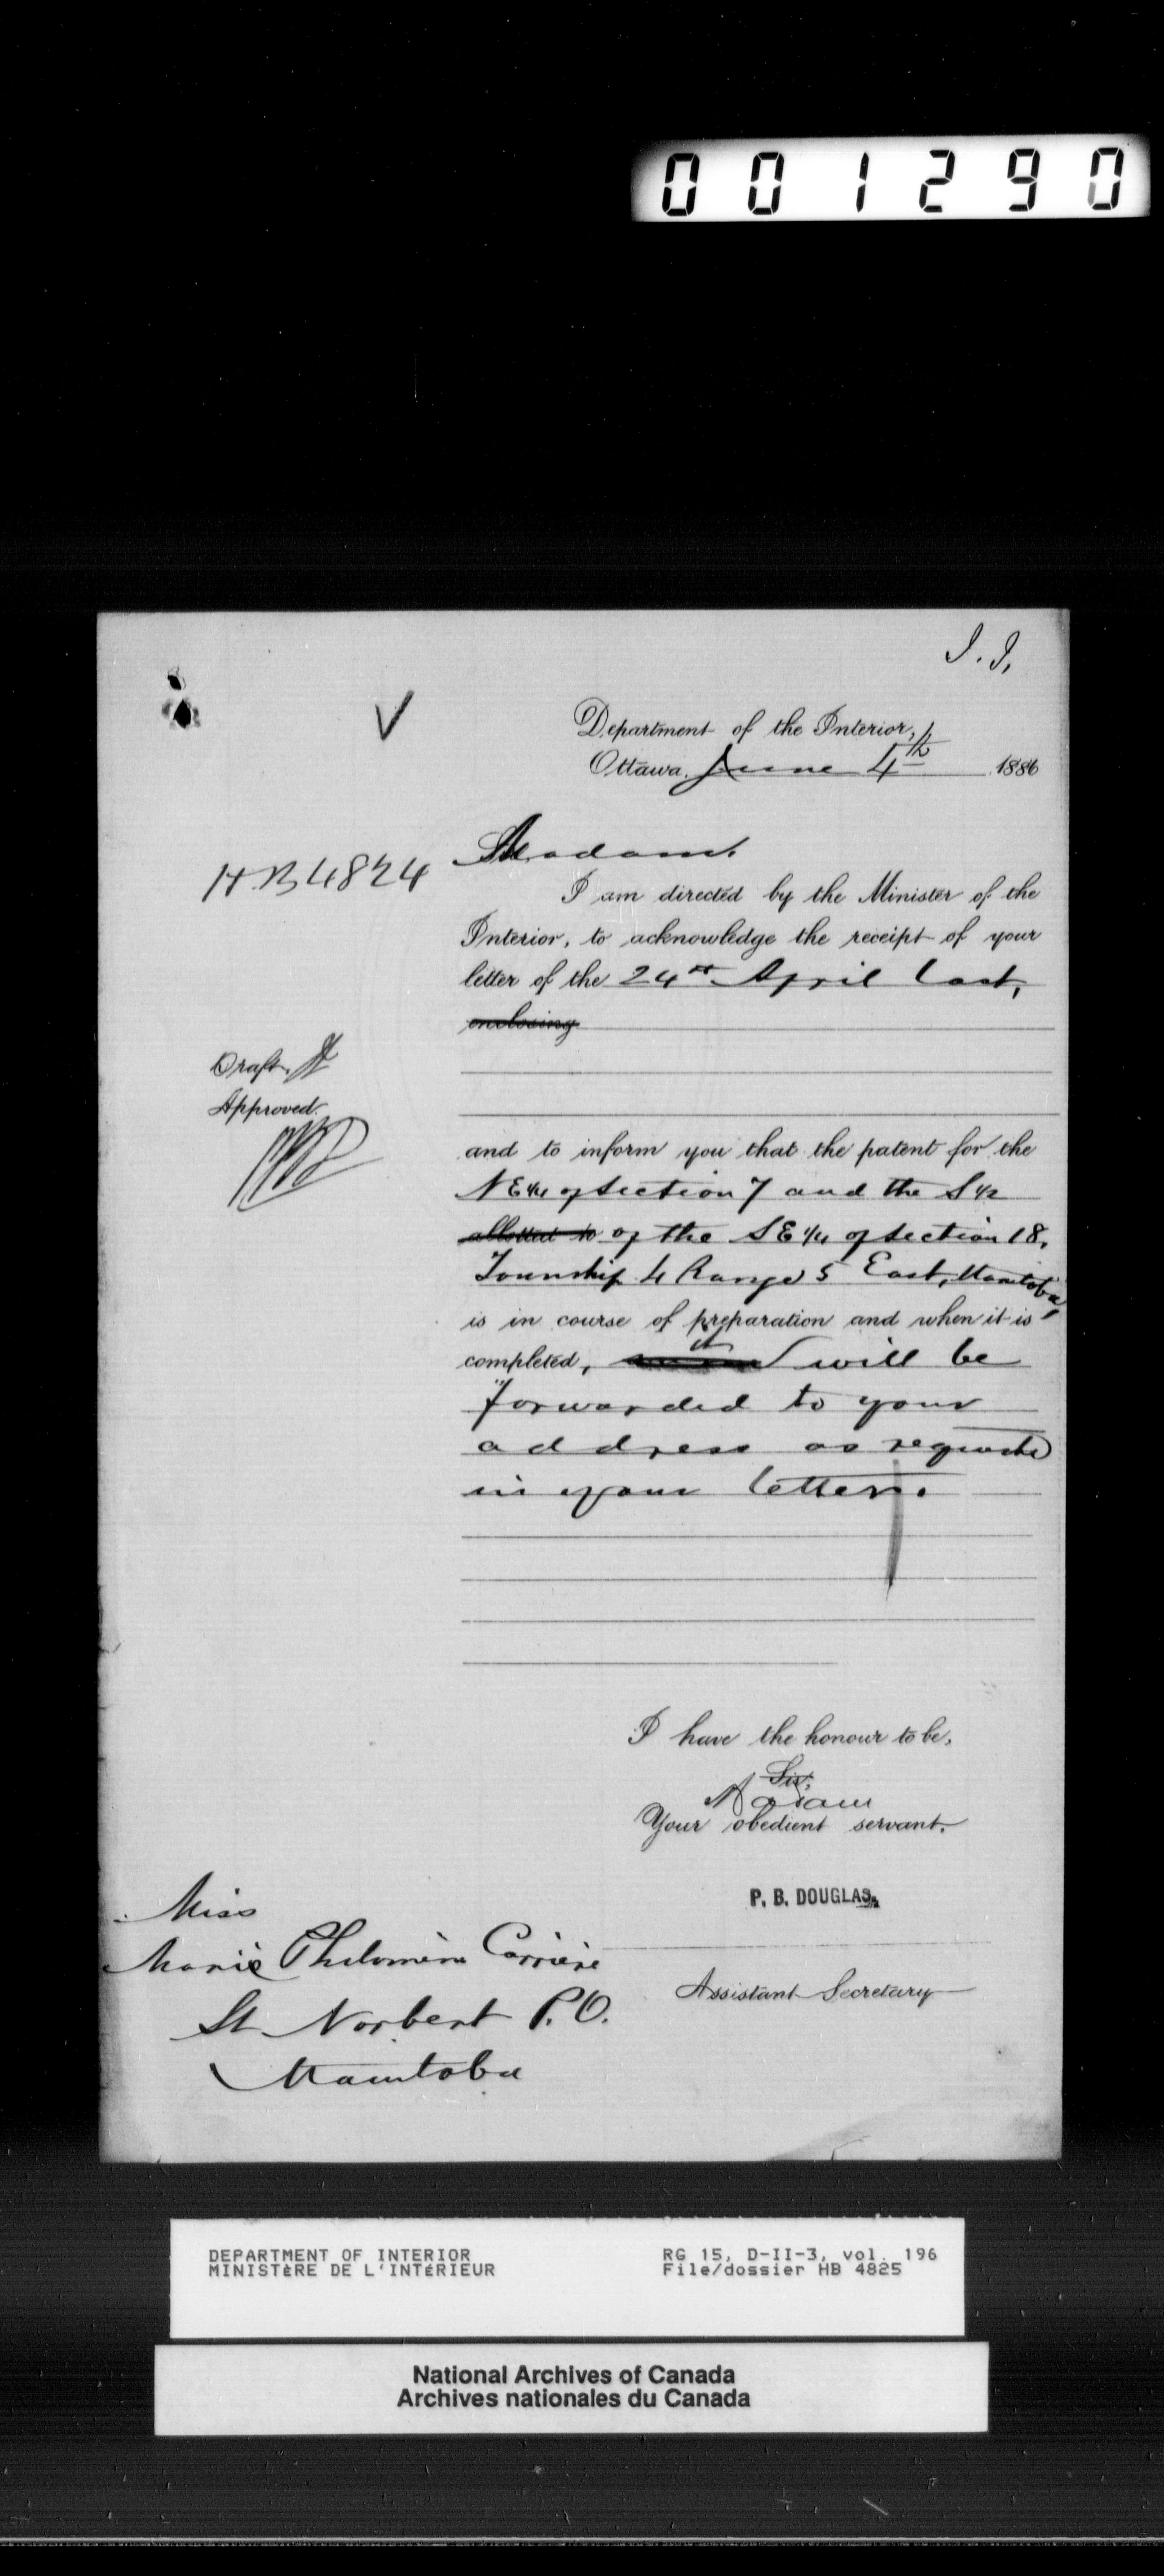 001290
I. I.
Department of the Interior,
Ottawa, June 4th 1886
Madam.
HB 4824
I am directed by the Minister of the
Interior, to acknowledge the receipt of your
letter of the 24th April last,
enclosing
Draft.
Approved.
and to inform you that the patent for the
NE 1/4 of Section 7 and the S 1/2
allotted to of the SE 1/4 of Section 18,
Township 4 Range 5 East, Manitoba,
is in course of preparation and when it is
completed, it will be
forwarded to your
address as requested
in your letter.
I have the honour to be,
Sir,
Madam
Your obedient servant.
P. B. DOUGLAS,
Assistant Secretary
Miss
Marie Philomène Carrière
St Norbert P.O.
Manitoba
DEPARTMENT OF INTERIOR
MINISTÈRE DE L'INTÉRIEUR
RG 15, D-II-3, vol. 196
File/dossier HB 4825
National Archives of Canada
Archives nationales du Canada